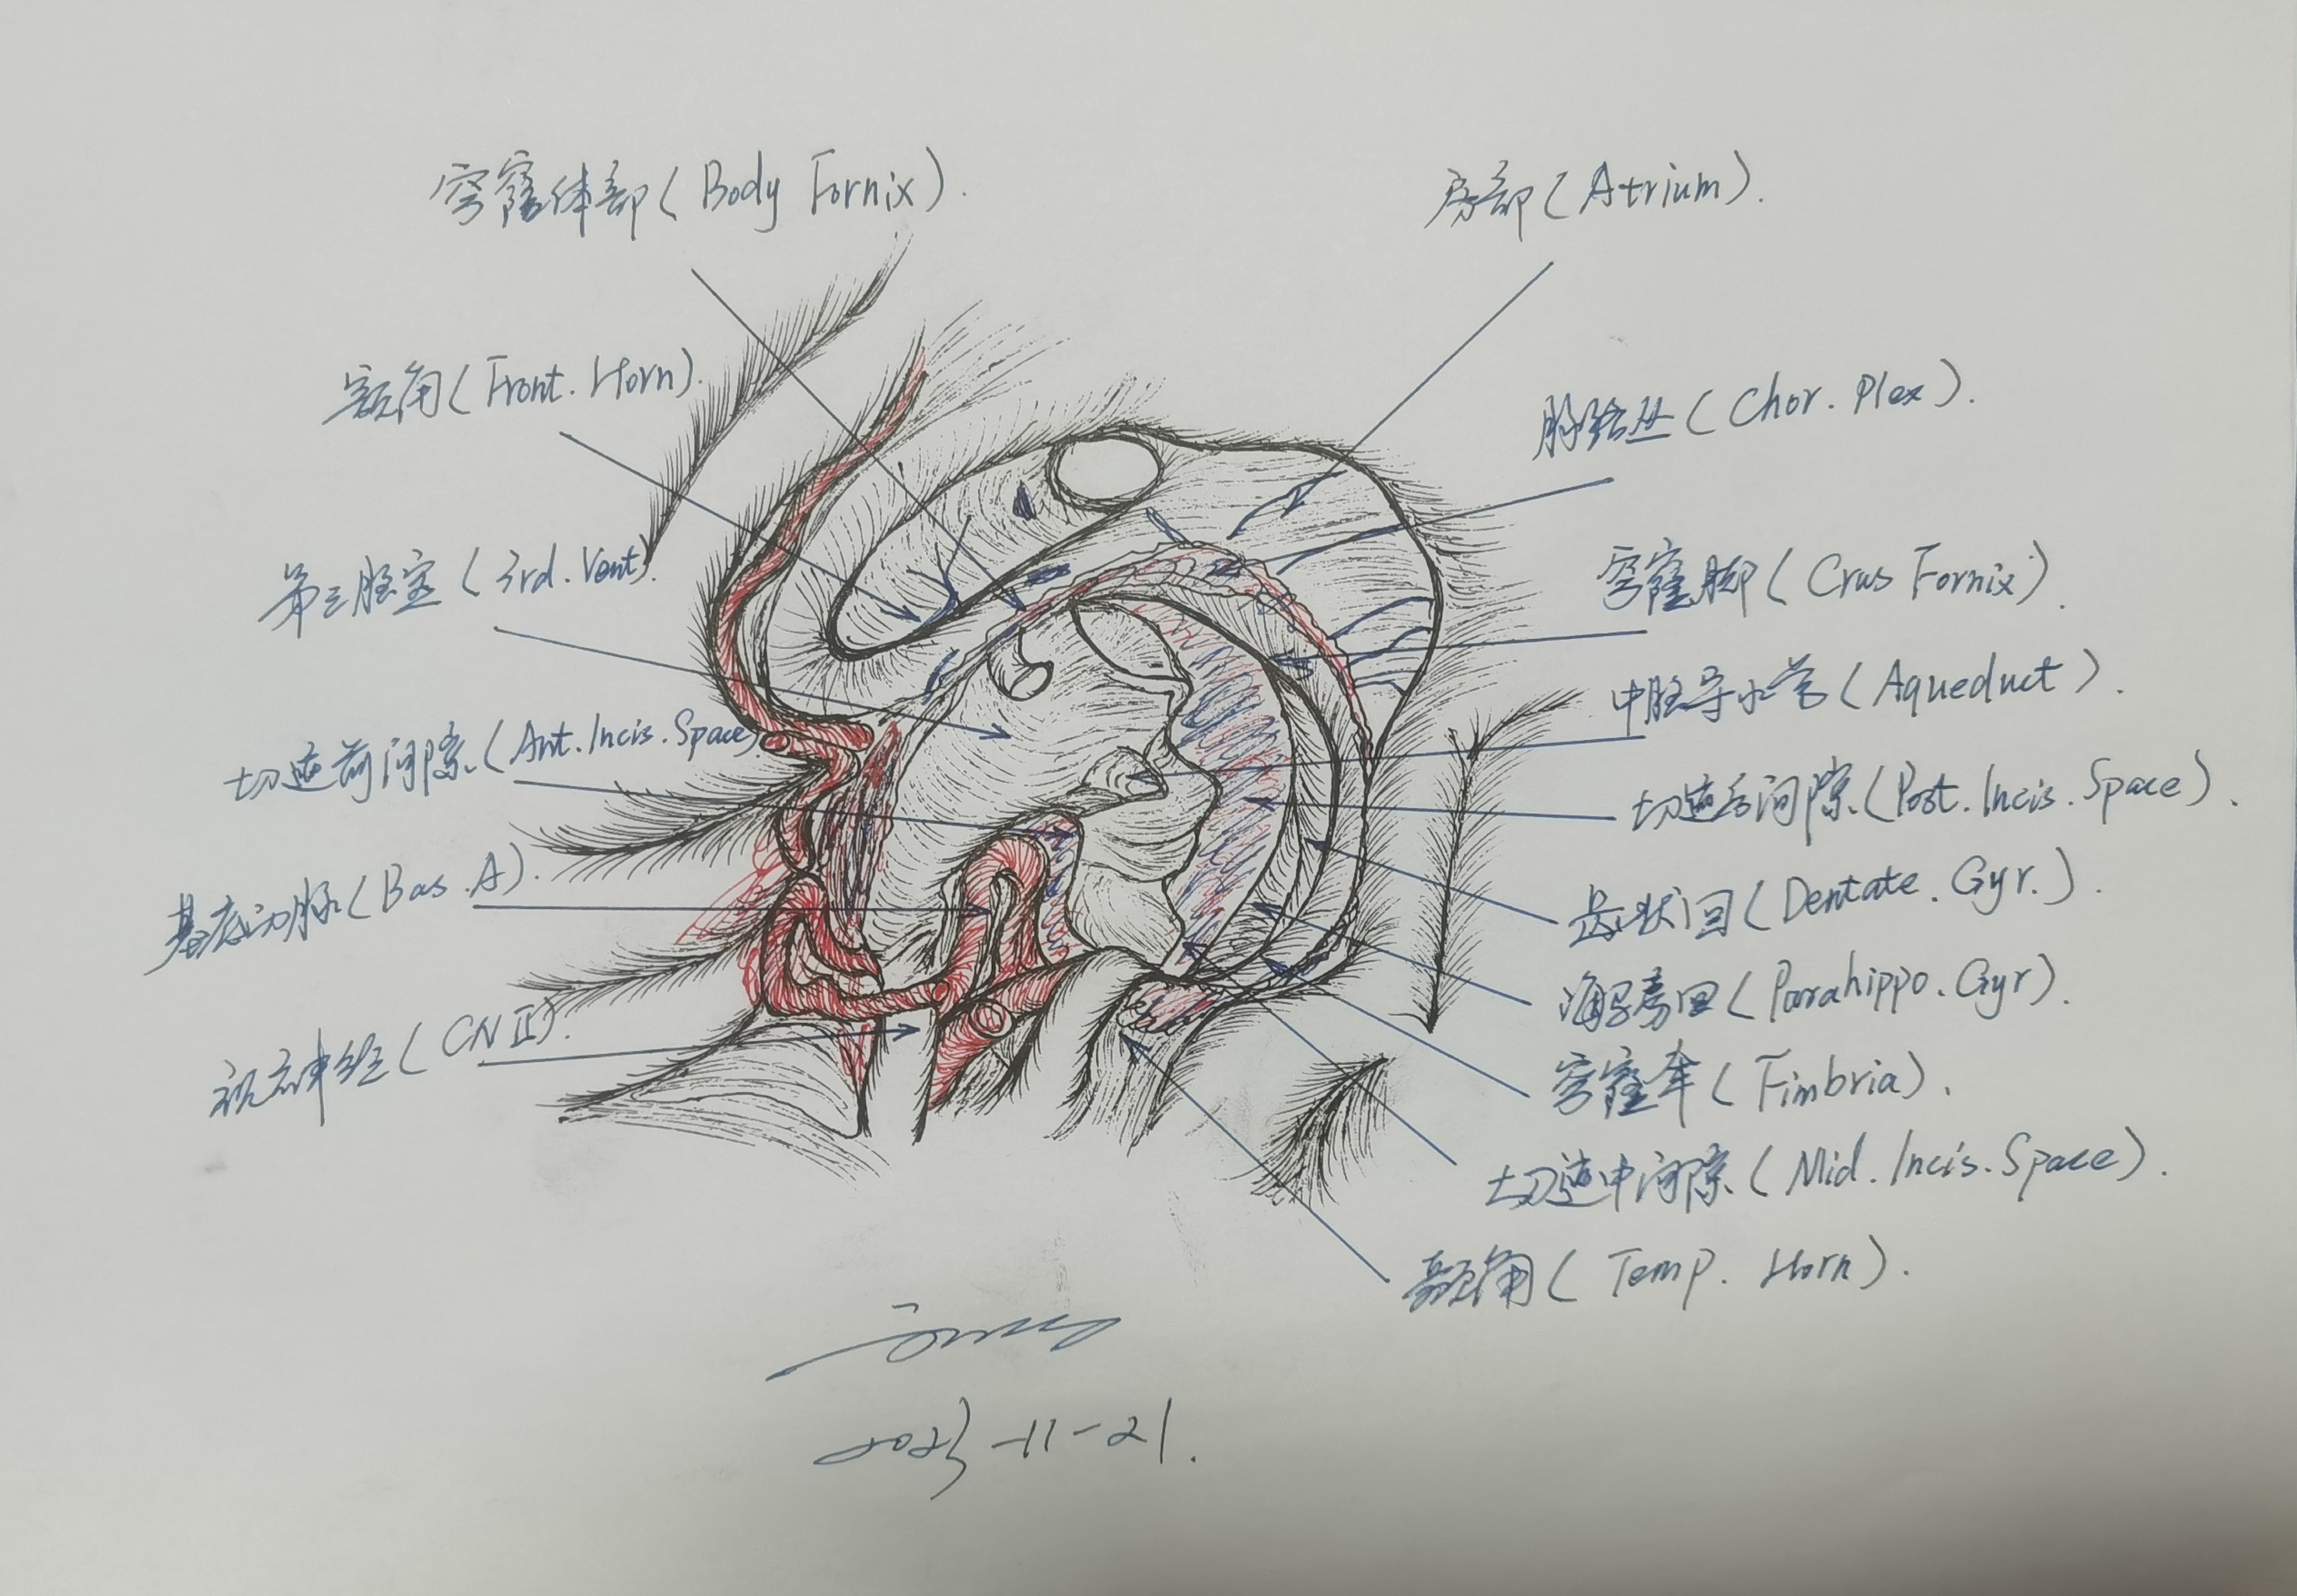 穹窿体部(Body Fornix).
房部(Atrium).
额角(Front. Horn).
脉络丛(Chor. Plex).
第三脑室(3rd. Vent).
穹窿脚(Crus Fornix).
中脑导水管(Aqueduct).
切迹前间隙(Ant. Incis. Space)
切迹后间隙(Post. Incis. Space).
基底动脉(Bas. A).
齿状回(Dentate. Gyr.).
海马旁回(Parahippo. Gyr).
视神经(CN II).
穹窿伞(Fimbria).
切迹中间隙(Mid. Incis. Space).
颞角(Temp. Horn).
2023-11-21.